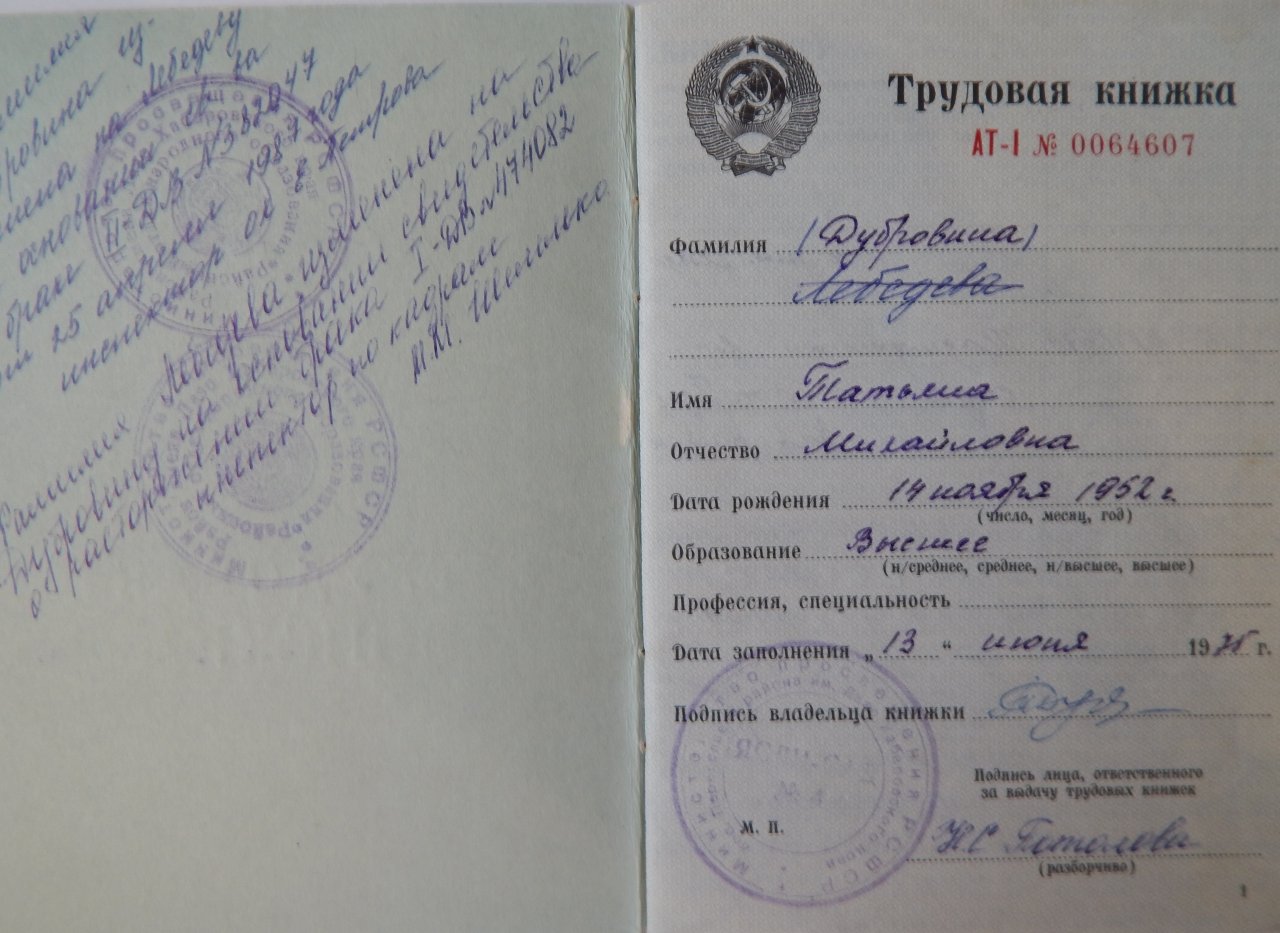 Фамилия
Дубровина из-
менена на Лебедеву
на основании св-ва
о браке II ДВ №382047
от 25 апреля 1987 года
инспектор ок Петрова
Фамилия Лебедева изменена на
Дубровину на основании свидетельства
о расторжении брака I-ДВ №474082
инспектор по кадрам
М.М.
Трудовая книжка
АТ-I № 0064607
Фамилия (Дубровина)
Лебедева
Имя Татьяна
Отчество Михайловна
Дата рождения 14 ноября 1952 г.
(число, месяц, год)
Образование Высшее
(н/среднее, среднее, н/высшее, высшее)
Профессия, специальность
Дата заполнения „13“ июня 1975 г.
Подпись владельца книжки
Подпись лица, ответственного
за выдачу трудовых книжек
М. П.
(разборчиво)
1
Министерство просвещения РСФСР